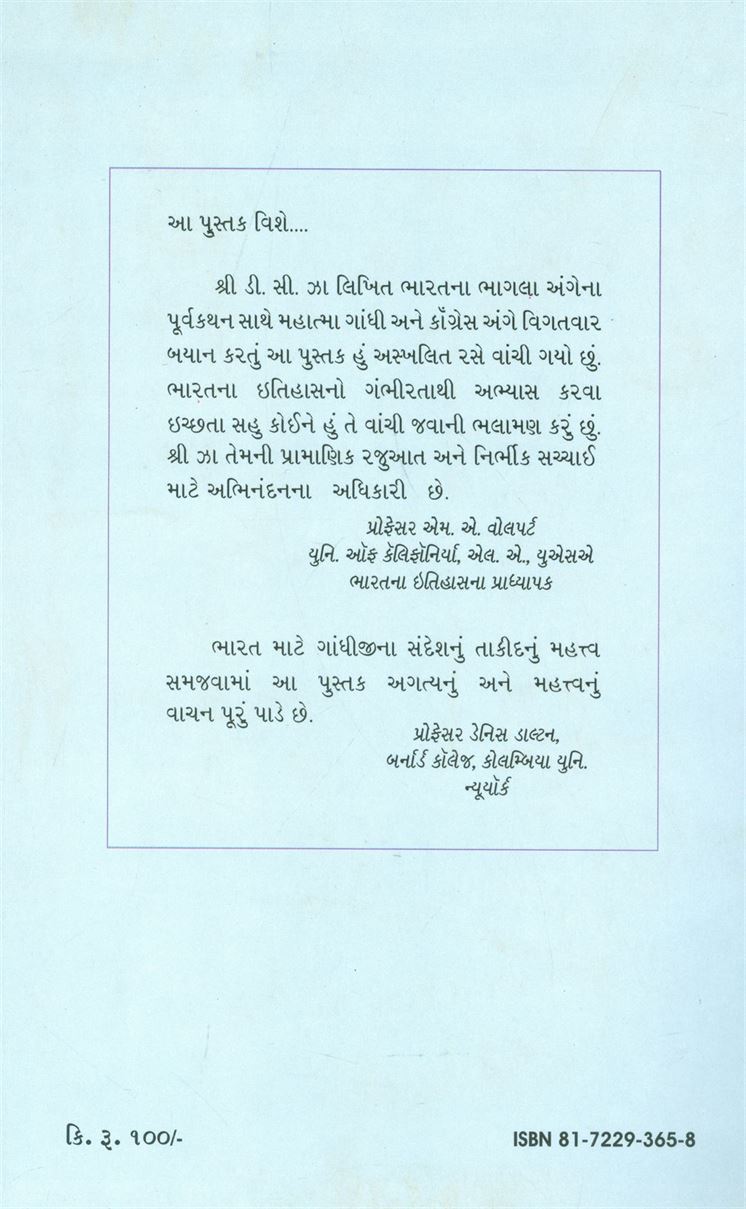 આ પુસ્તક વિશે....
શ્રી ડી. સી. ઝા લિખિત ભારતના ભાગલા અંગેના
પૂર્વકથન સાથે મહાત્મા ગાંધી અને કૉંગ્રેસ અંગે વિગતવાર
બયાન કરતું આ પુસ્તક હું અસ્ખલિત રસે વાંચી ગયો છું.
ભારતના ઇતિહાસનો ગંભીરતાથી અભ્યાસ કરવા
ઇચ્છતા સહુ કોઈને હું તે વાંચી જવાની ભલામણ કરું છું.
શ્રી ઝા તેમની પ્રામાણિક રજુઆત અને નિર્ભીક સચ્ચાઈ
માટે અભિનંદનના અધિકારી છે.
પ્રોફેસર એમ. એ. વોલપર્ટ
યુનિ. ઑફ કૅલિફૉનિર્યા, એલ. એ., યુએસએ
ભારતના ઇતિહાસના પ્રાધ્યાપક
ભારત માટે ગાંધીજીના સંદેશનું તાકીદનું મહત્ત્વ
સમજવામાં આ પુસ્તક અગત્યનું અને મહત્ત્વનું
વાચન પૂરું પાડે છે.
પ્રોફેસર ડેનિસ ડાલ્ટન,
બર્નાર્ડ કૉલેજ, કોલમ્બિયા યુનિ.
ન્યૂયૉર્ક
કિ. રૂ. ૧૦૦/-
ISBN 81-7229-365-8